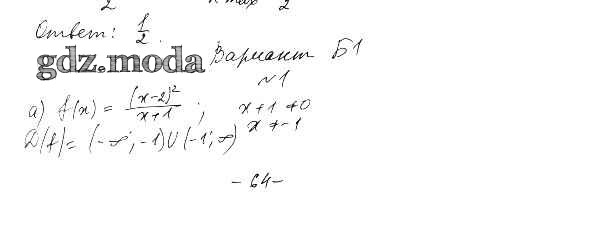 2 n max 2
Ответ: 1/2.
gdz.moda Вариант Б1
N1
а) f(x) = (x-2)²/x+1 ; x+1 ≠ 0
x ≠ -1
D(f)= (-∞; -1)U(-1; ∞)
- 64 -